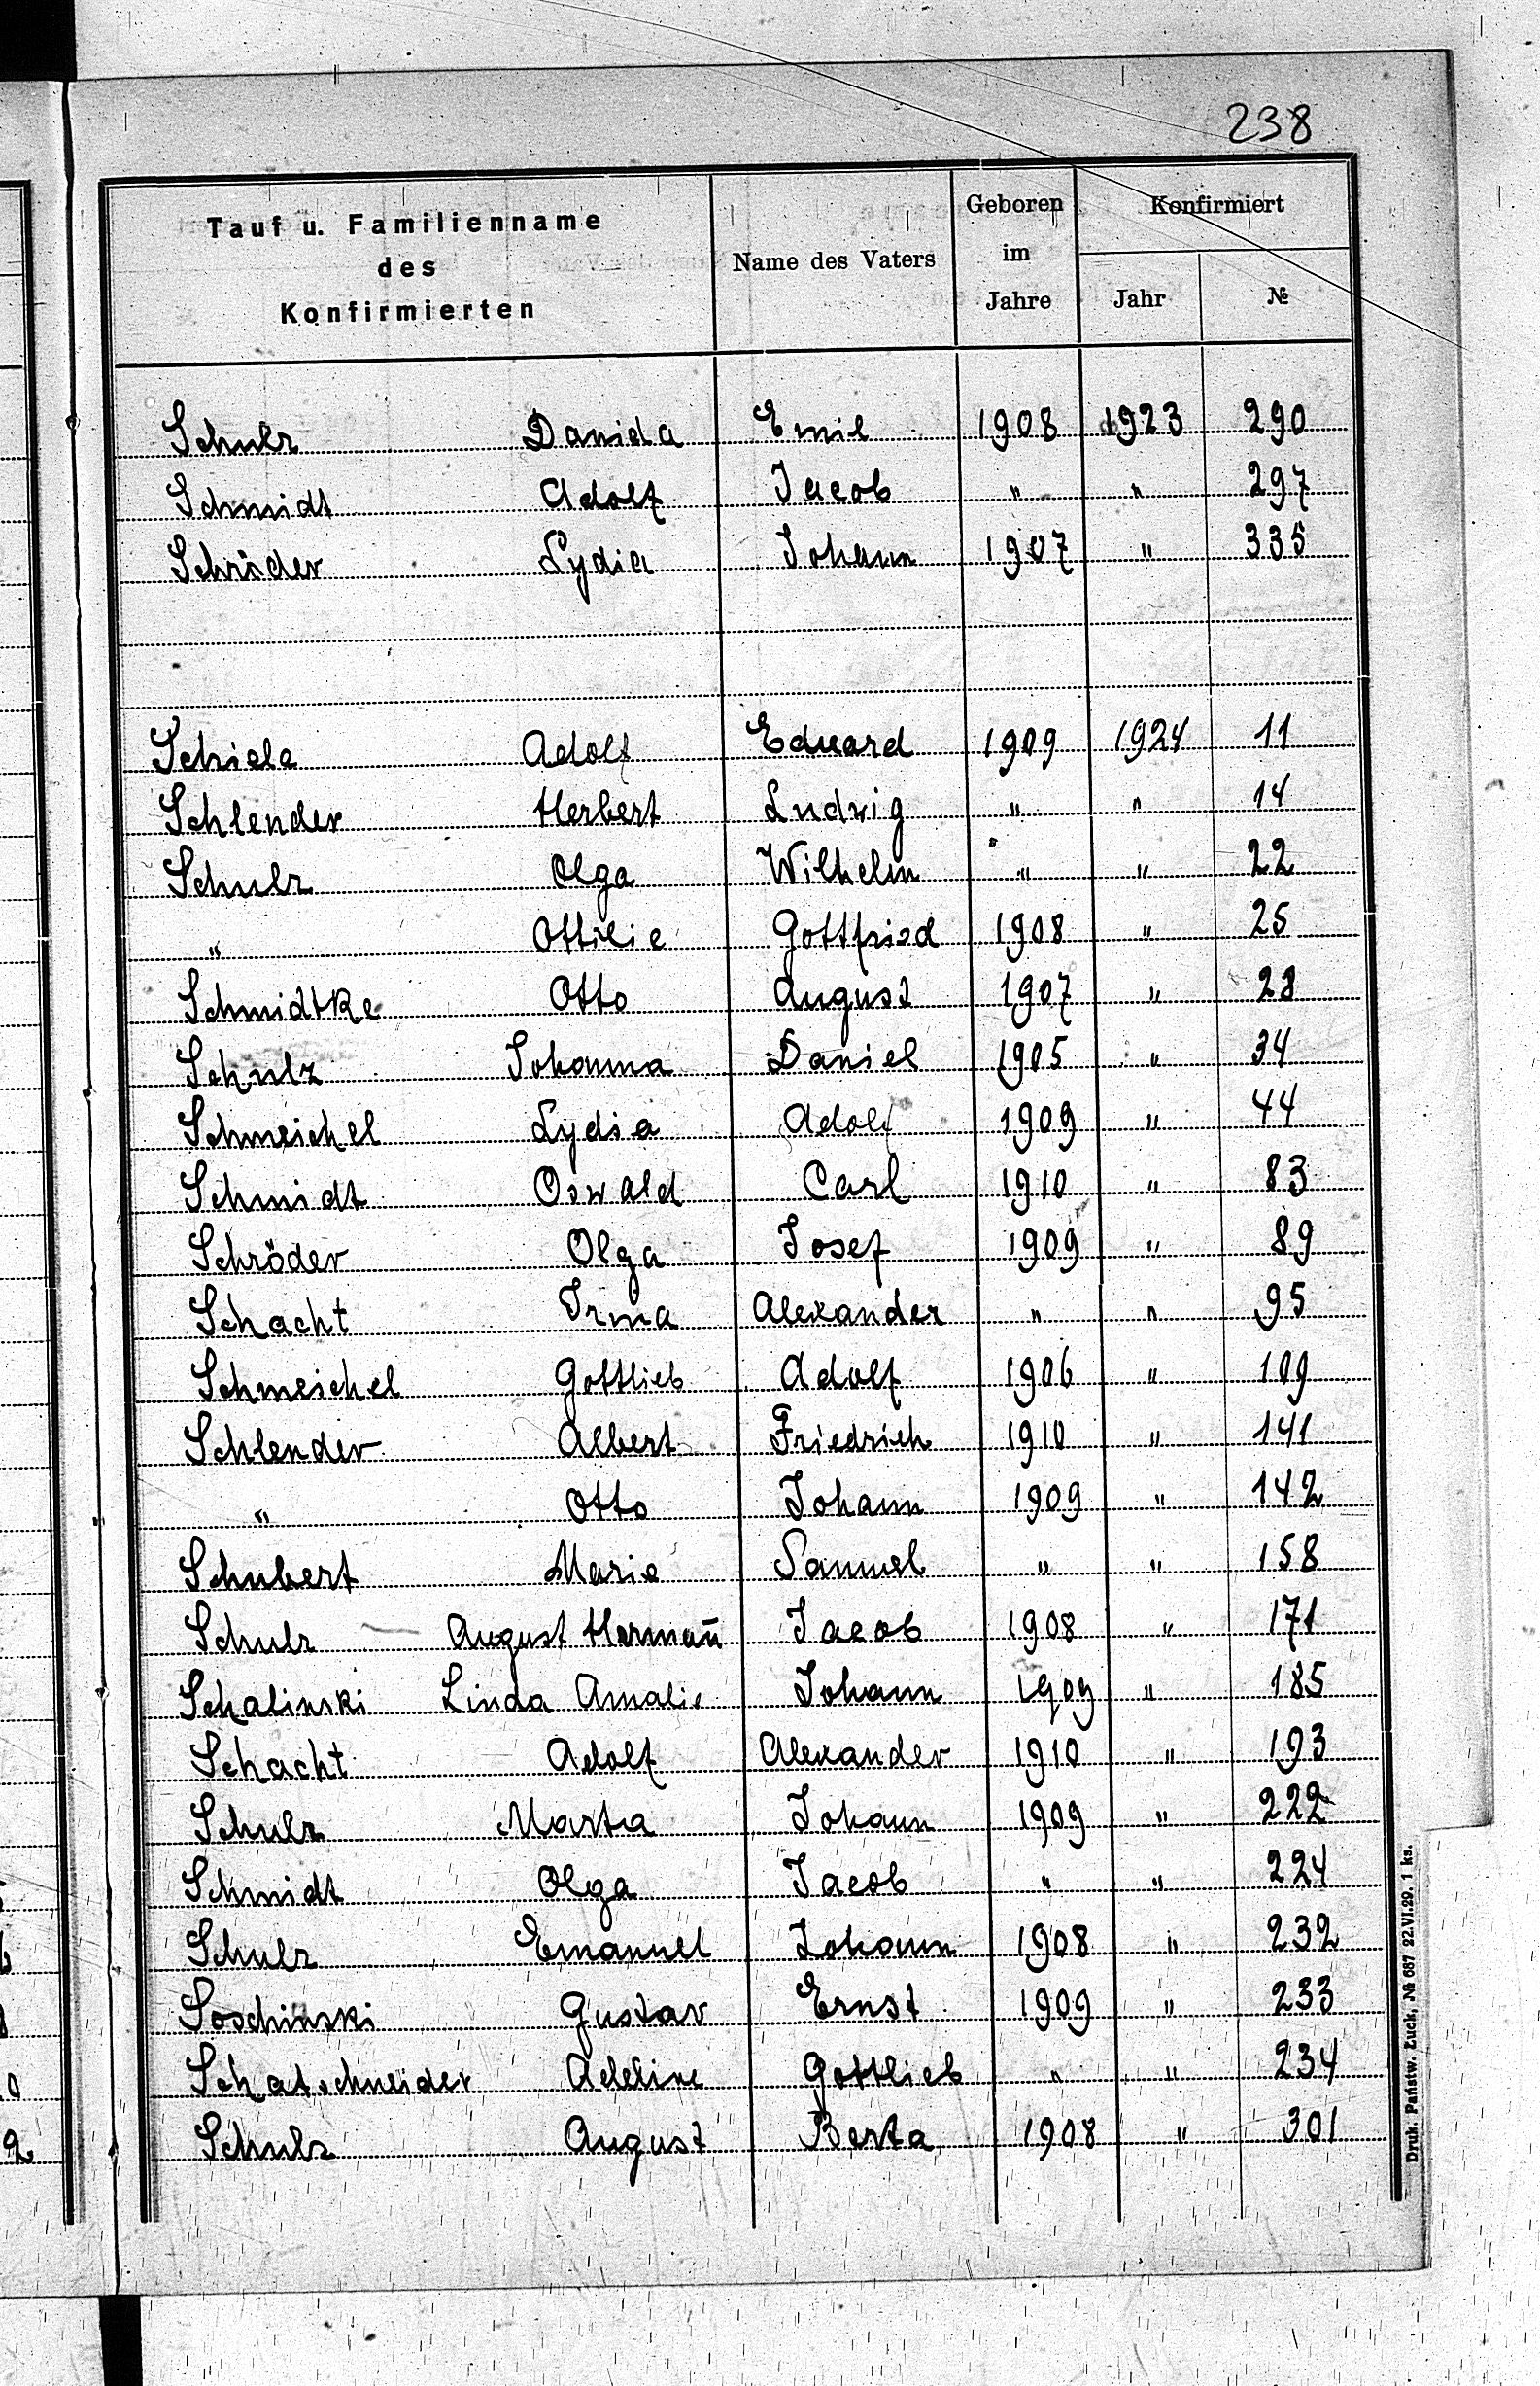 238
Tauf u. Familienname des Konfirmierten | Name des Vaters | Geboren im Jahre | Konfirmiert Jahr | №
Schulz Daniela Emil 1908 1923 290
Schmidt Adolf Jacob " " 297
Schröder Lydia Johann 1907 " 335
Schiele Adolf Eduard 1909 1924 11
Schlender Herbert Ludwig " " 14
Schulz Olga Wilhelm " " 22
" Ottilie Gottfried 1908 " 25
Schmidtke Otto August 1907 " 28
Schulz Johanna Daniel 1905 " 34
Schmeichel Lydia Adolf 1909 " 44
Schmidt Oswald Carl 1910 " 83
Schröder Olga Josef 1909 " 89
Schacht Irma Alexander " " 95
Schmeichel Gottlieb Adolf 1906 " 109
Schlender Albert Friedrich 1910 " 141
" Otto Johann 1909 " 142
Schubert Marie Samuel " " 158
Schulz August Hermañ Jacob 1908 " 171
Schalinski Linda Amalie Johann 1909 " 185
Schacht Adolf Alexander 1910 " 193
Schulz Marta Johann 1909 " 222
Schmidt Olga Jacob " " 224
Schulz Emanuel Johann 1908 " 232
Soschinski Gustav Ernst 1909 " 233
Schatschneider Adeline Gottlieb " " 234
Schulz August Berta 1908 " 301
Druk. Państw. Łuck, № 687 22.VI.29. 1 ks.